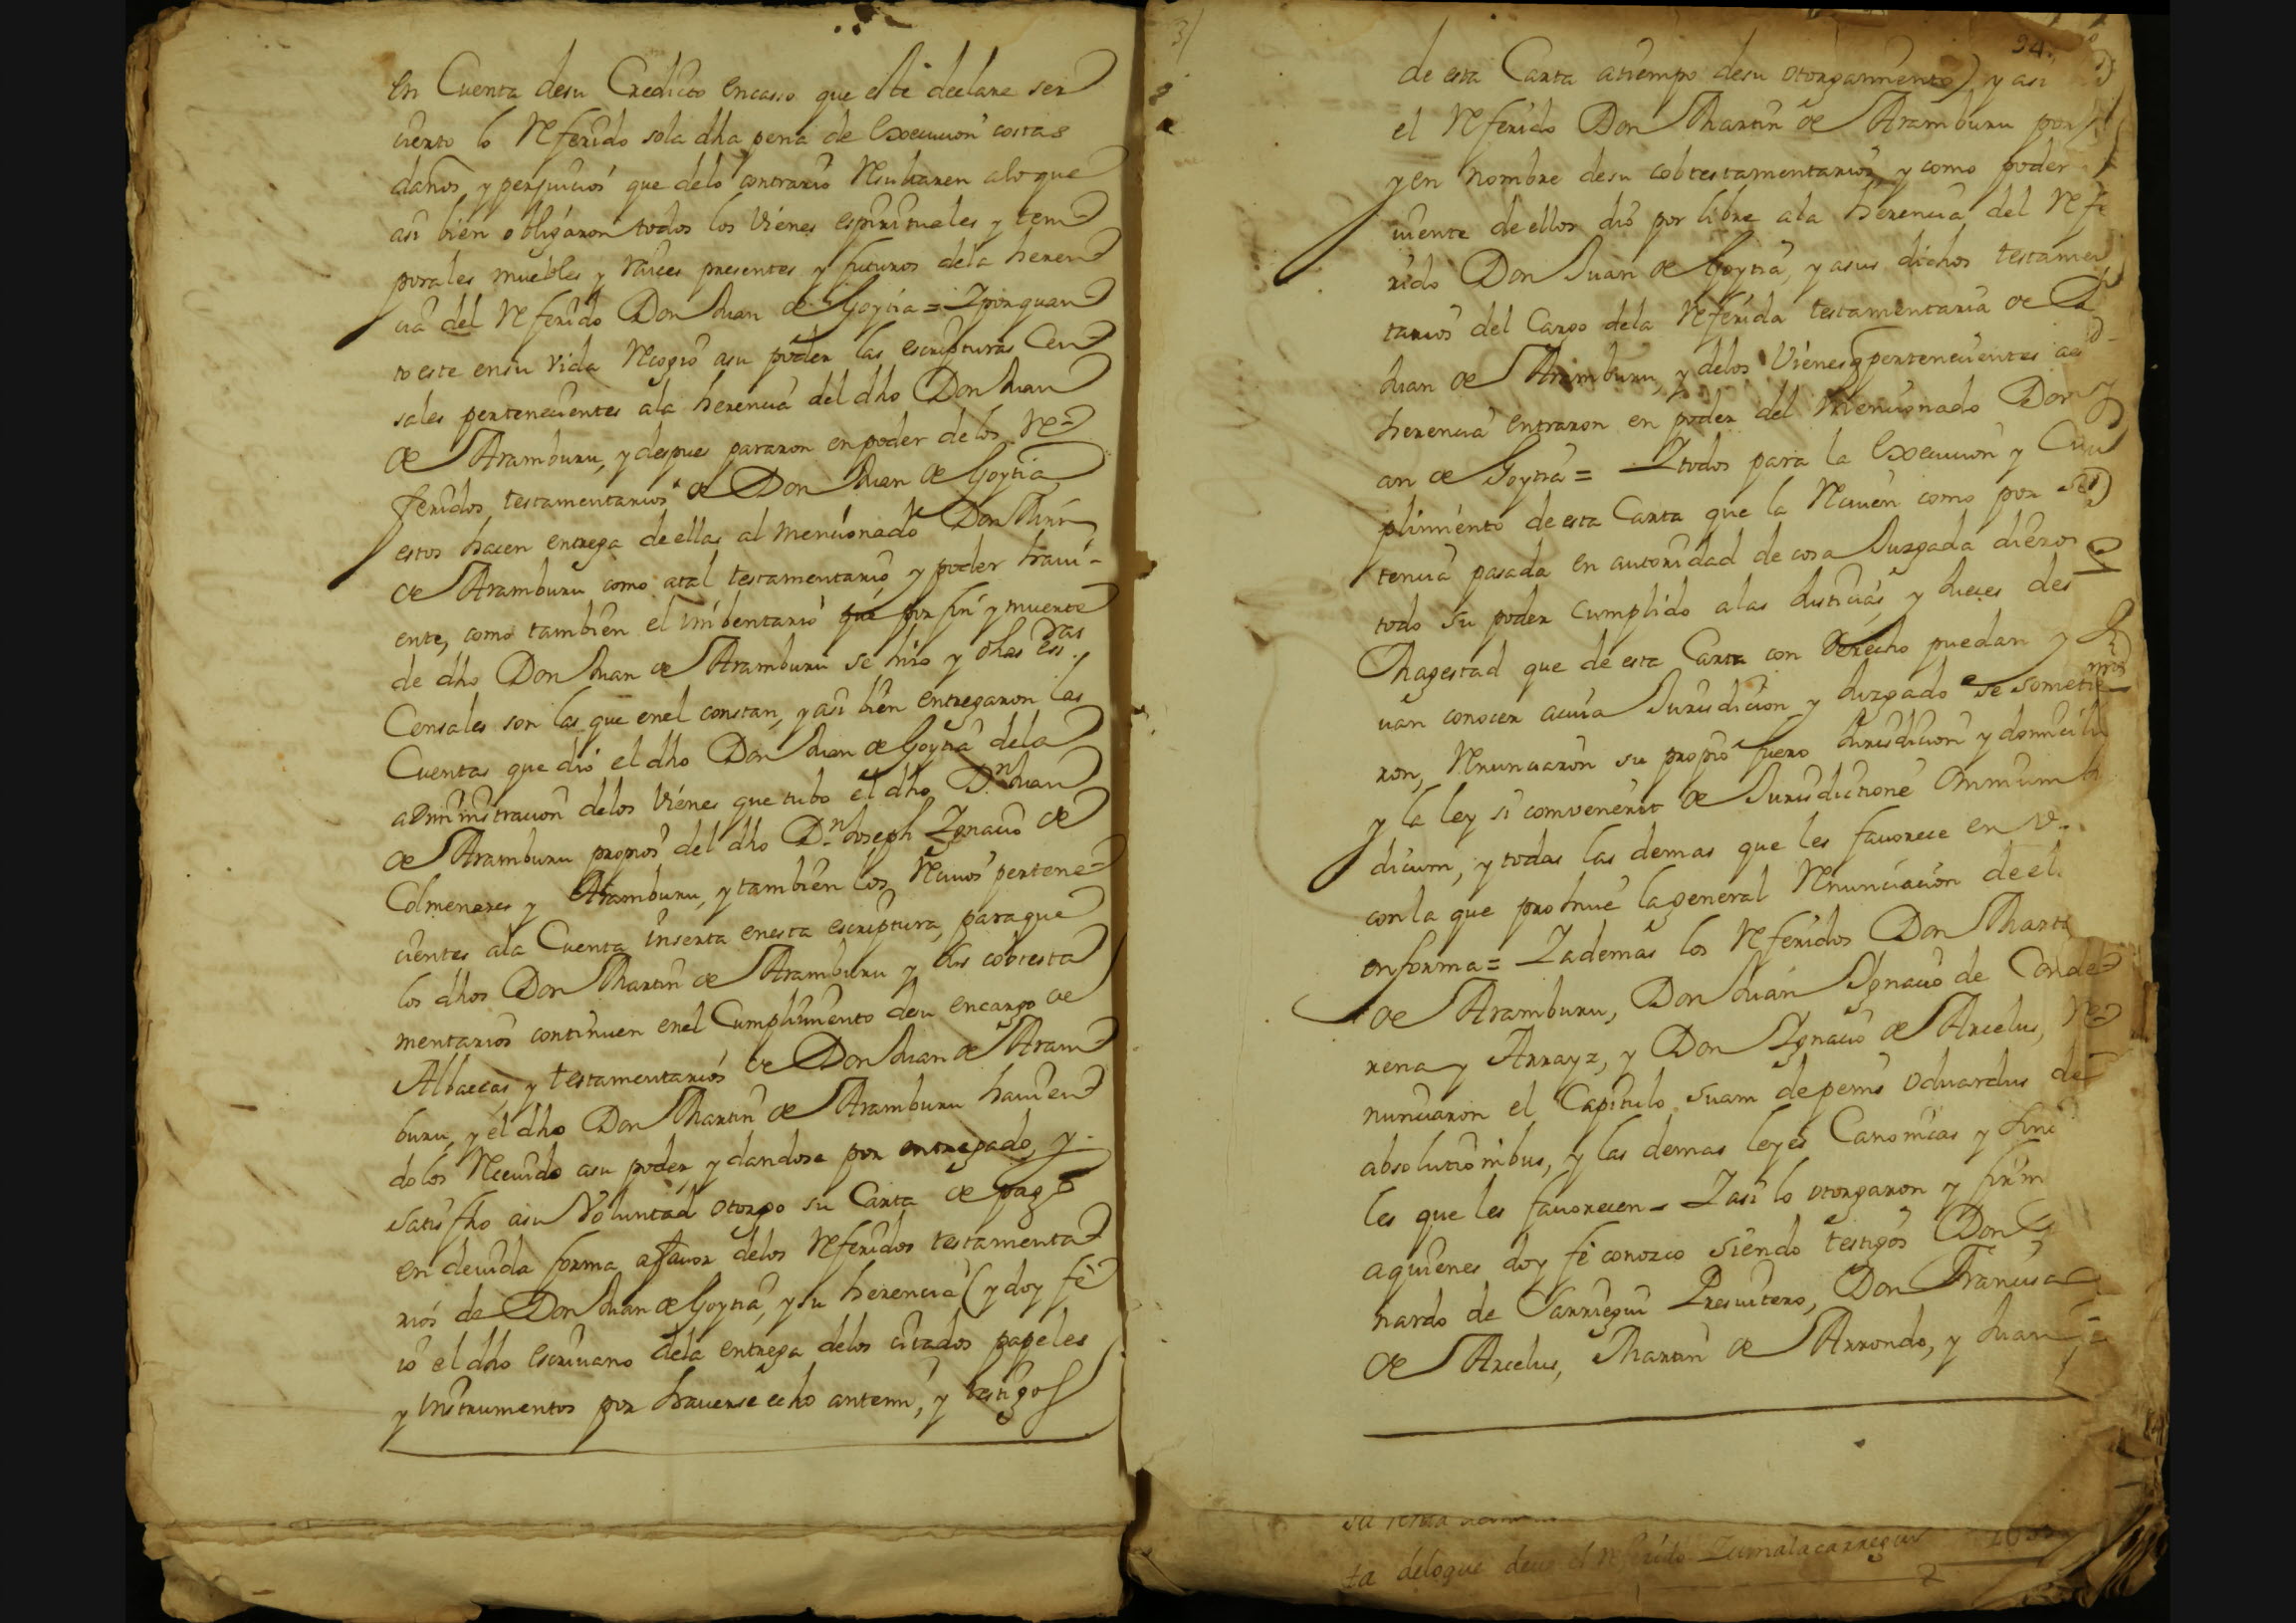 en Cuenta desu Credicto encasso que este declare ser
cierto lo Referido sola dha pena de Execucion costas
daños, y perjuicios que delo contrario Resultaren aloque
asi bien obligaron todos los vienes espirituales y tem
porales muebles y raices presentes y futuros dela heren
cia del Referido Don Juan de Goytia = Iporquan
to este ensu vida Recogio asu poder las escripturas Cen
sales pertenecientes ala herencia del dho Don Juan
de Aramburu, y despues pararon en poder de los Re
feridos testamentarios de Don Juan de Goytia
estos hacen entrega de ellas al mencionado Don Mrn
de Aramburu como atal testamentario y poder havi-
ente, como tambien el imbentario que por fin y muerte
de dho Don Juan de Aramburu se hizo y dhas essras
Censales son las que enel constan, y asi bien entregaron las
Cuentas que dio el dho Don Juan de Goytia dela
administracion delos vienes que tubo el dho Dn Juan
de Aramburu propios del dho Dn Joseph Ignacio de
Colmenares y Aramburu, y tambien los Recivos pertene
cientes ala Cuenta inserta enesta escriptura, paraque
los dhos Don Martin de Aramburu y sus cotesta
mentarios continuen enel Cumplimiento desu encargo de
Albaceas, y testamentarios de Don Juan de Aram
buru, y el dho Don Martin de Aramburu havien
dolos Recivido asu poder, y dandose por entregado, y
satisfho asu Voluntad otorgo su Carta de pago
en devida forma afavor delos Referidos testamenta
rios de Don Juan de Goytia, y su herencia (y doy fe
io el dho escrivano dela entrega delos citados papeles
y instrumentos por haverse echo antemi, y testigos
34.
de esta Carta atiempo desu otorgamiento) y asi
el Referido Don Martin de Aramburu por si
y en nombre desu cotestamentarios, y como poder
viente de ellos dio por libre ala herencia del Refe
rido Don Juan de Goytia, y asus dichos testamen
tarios del Cargo dela Referida testamentaria de
Juan de Aramburu, y delos Vienes q pertenecientes
herencia entraron en poder del mencionado Don
an de Goytia = Itodos para la Execucion y Cum
plimiento de esta Carta que la Reciven como por
tencia pasada en autoridad de cosa Juzgada dieron
todo su poder cumplido alas Justicias y Jueces de s
Magestad que de esta Carta con Derecho puedan y
van conocer acuia Jurisdicion y Juzgado se sometie
ron, Renunciaron su propio fuero Jurisdicion y domicili
y la ley si convenerit de Jurisdictione omnium
dicum, y todas las demas que les favorece en
conla que prohive la general Renunciacion de el
enforma = Iademas los Referidos Don Mart
de Aramburu, Don Juan Ignacio de Conde
rena y Arrayz, y Don Ignacio de Arcelus, Re
nunciaron el Capitulo suam depenis oduardus de
absolutionibus, y las demas leyes Canonicas y
les que les favorecen = Iasi lo otorgaron y firm
aquienes doy fe conozco siendo testigos Don
nardo de Sarriegui Presvitero, Don Francisc
de Arcelus, Martin de Arrondo, y Juan
ta deloque deve el Referido Zumalacarregui